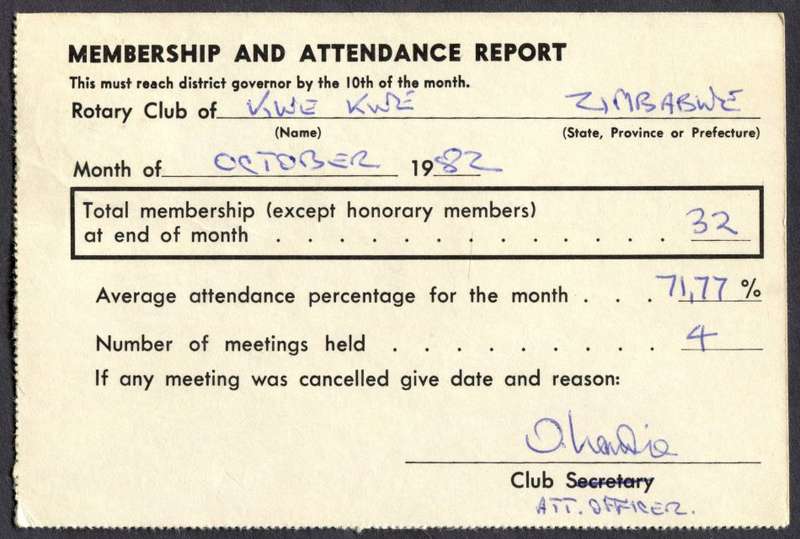 MEMBERSHIP AND ATTENDANCE REPORT
This must reach district governor by the 10th of the month.
Rotary Club of KWE KWE ZIMBABWE
(Name) (State, Province or Prefecture)
Month of OCTOBER 1982
Total membership (except honorary members)
at end of month . . . . . . . . . . . . . 32
Average attendance percentage for the month . . . 71,77 %
Number of meetings held . . . . . . . . . 4
If any meeting was cancelled give date and reason:
Club Secretary
ATT. OFFICER.